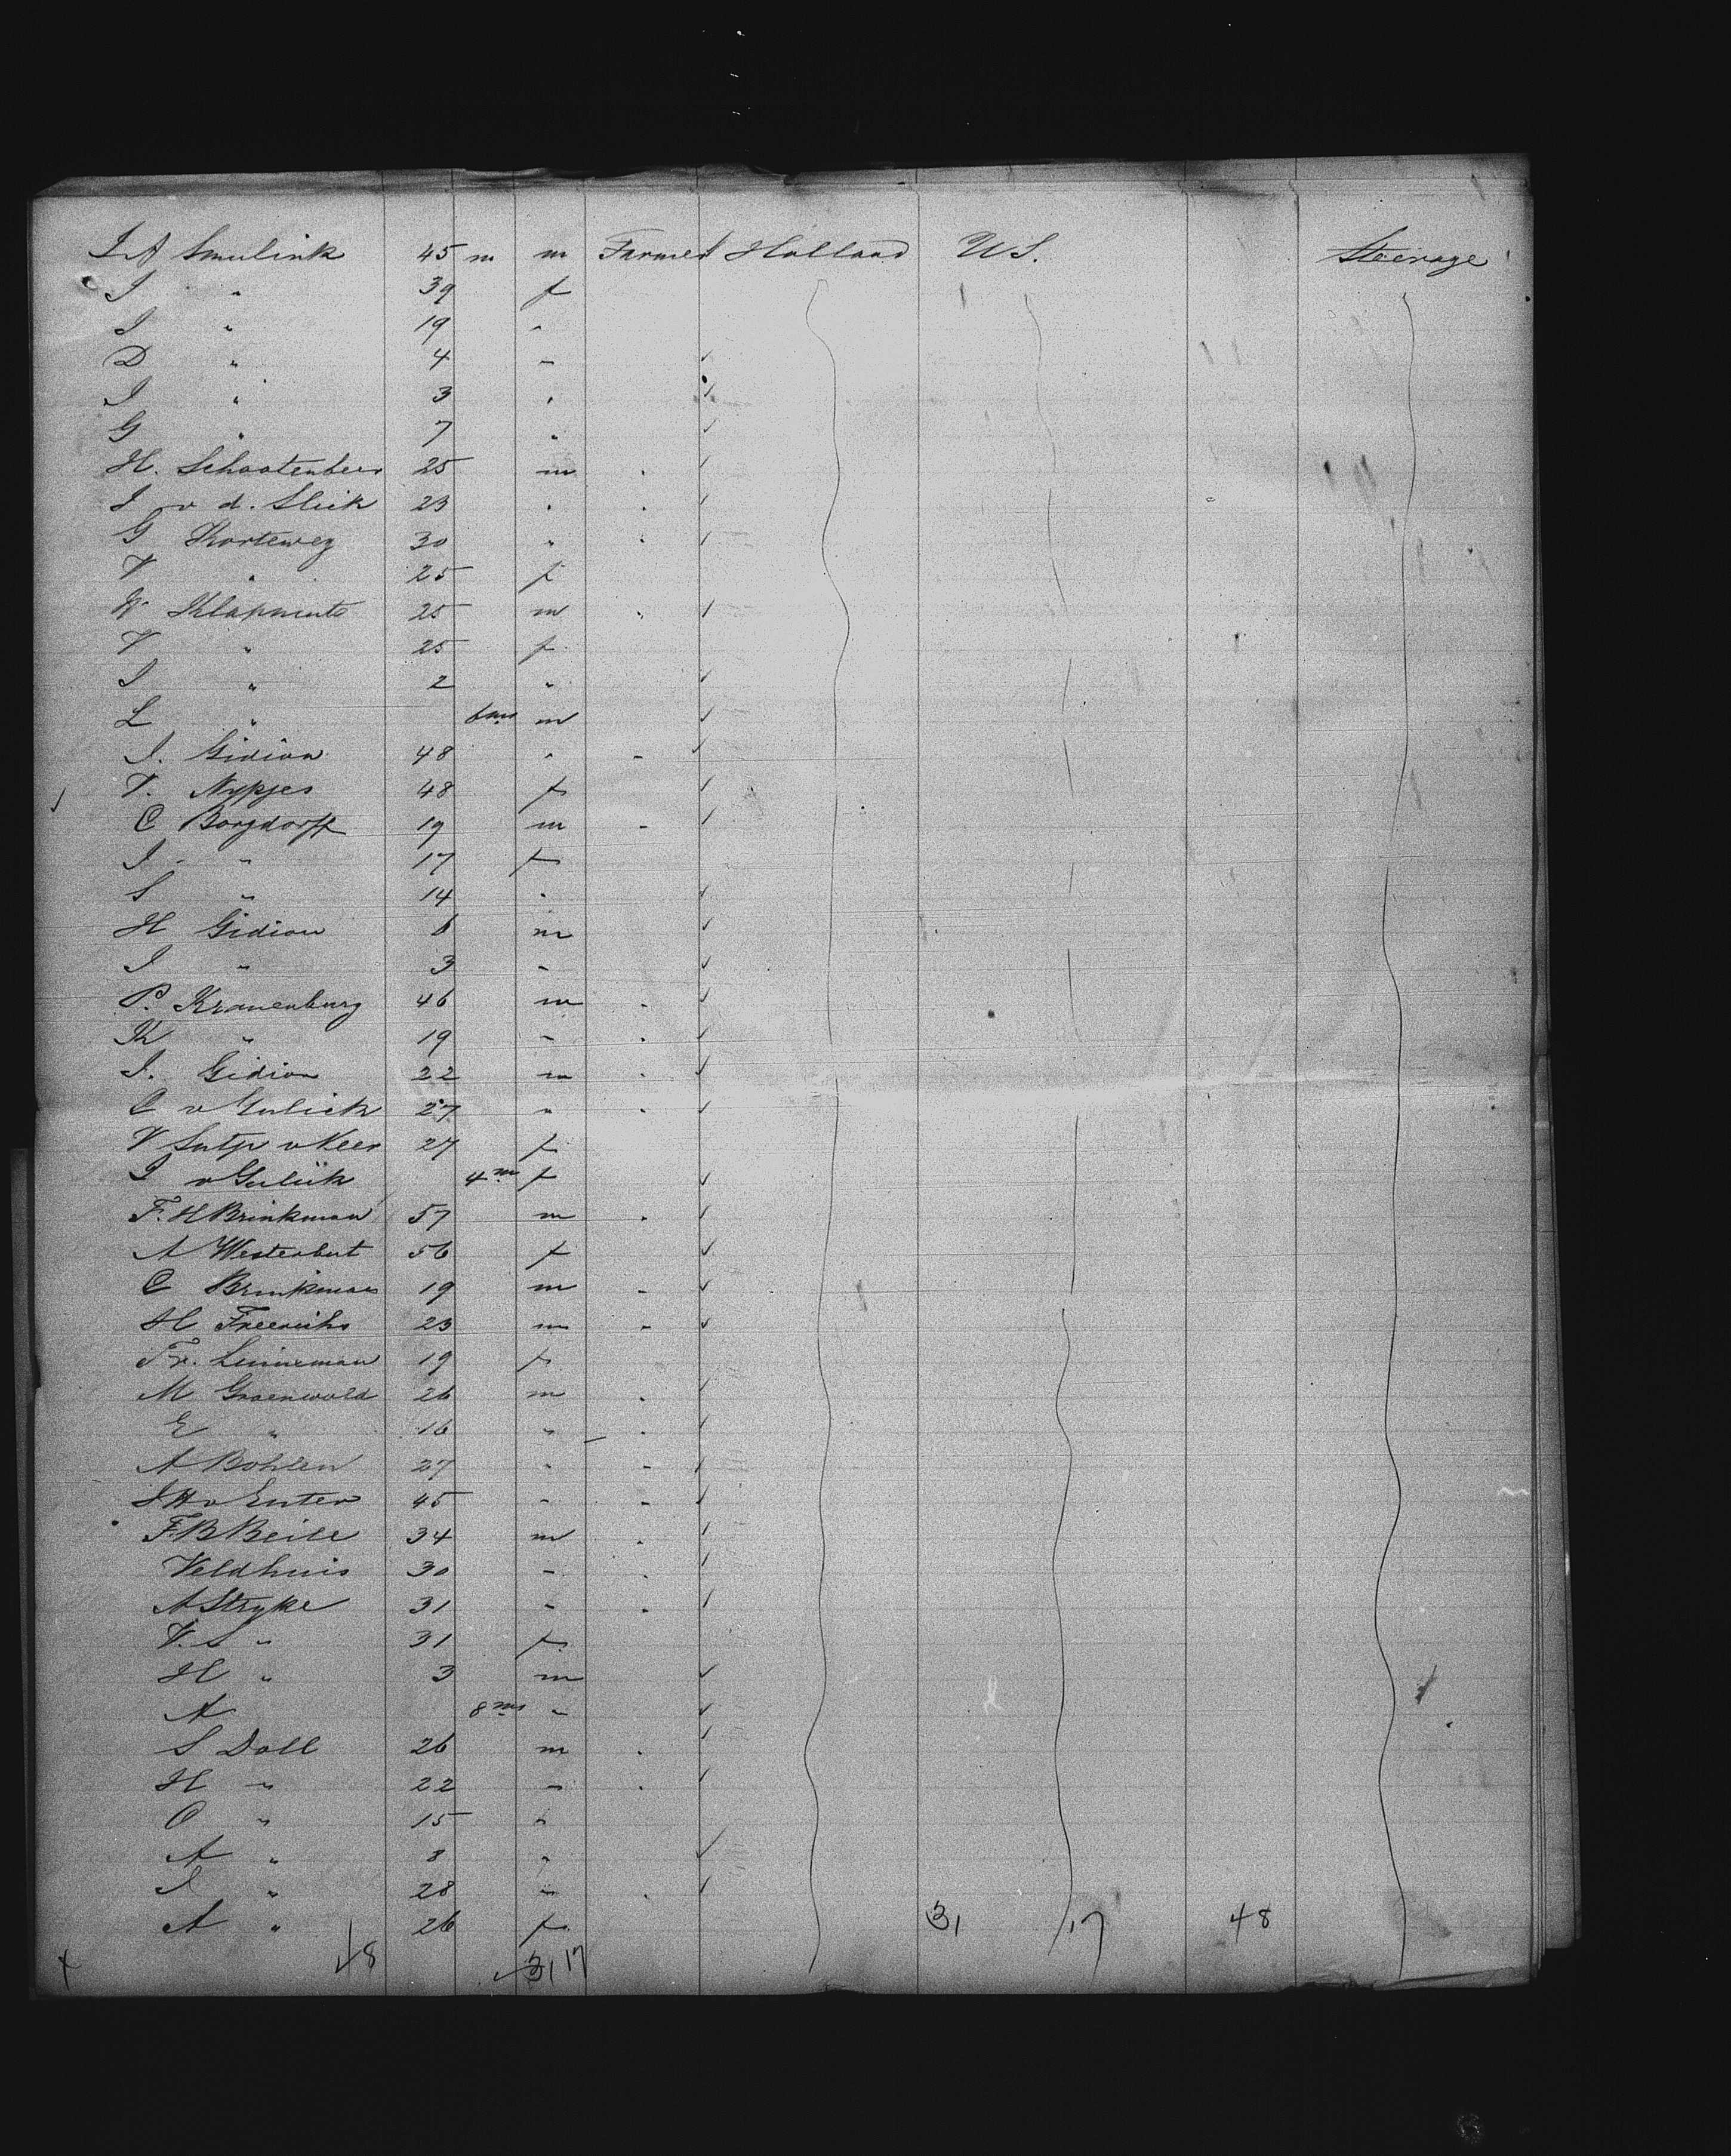 J A Smulink 45 m m Farmer Holland U S. Steerage
J " 39 f
J " 19 "
D " 4 "
J " 3 "
G " 7 "
H. Schootenbeer 25 m "
J v d. Sluik 23 " "
G Korteweg 30 " "
V " 25 f
W Klapmuts 25 m "
V " 25 f
J " 2 "
L " 6 ms m
J. Gidion 48 " "
V. Nypjes 48 f
C Borgdorff 19 m "
J " 17 f
S " 14 "
H Gidion 6 m
J " 3 "
P. Kranenburg 46 m "
K " 19 " "
J. Gidion 22 m "
C v Gulick 27 " "
V 27 f
J v Gulick 4 ms f
F. H Brinkman 57 m "
A Westerbut 56 f
C Brinkman 19 m "
H Freerichs 23 m "
Fr. Linneman 19 f
M Groenwold 26 m "
E " 16 " "
A Bohlen 27 " "
J H v Enter 45 " "
F. B Beile 34 m "
Veldhuis 30 " "
A Stryke 31 " "
V. S " 31 f
H " 3 m
A 8 ms "
S Doll 26 m "
H " 22 " "
O " 15 "
A " 8 "
J " 28 " "
A " 26 f 31 17 48
48 31 17